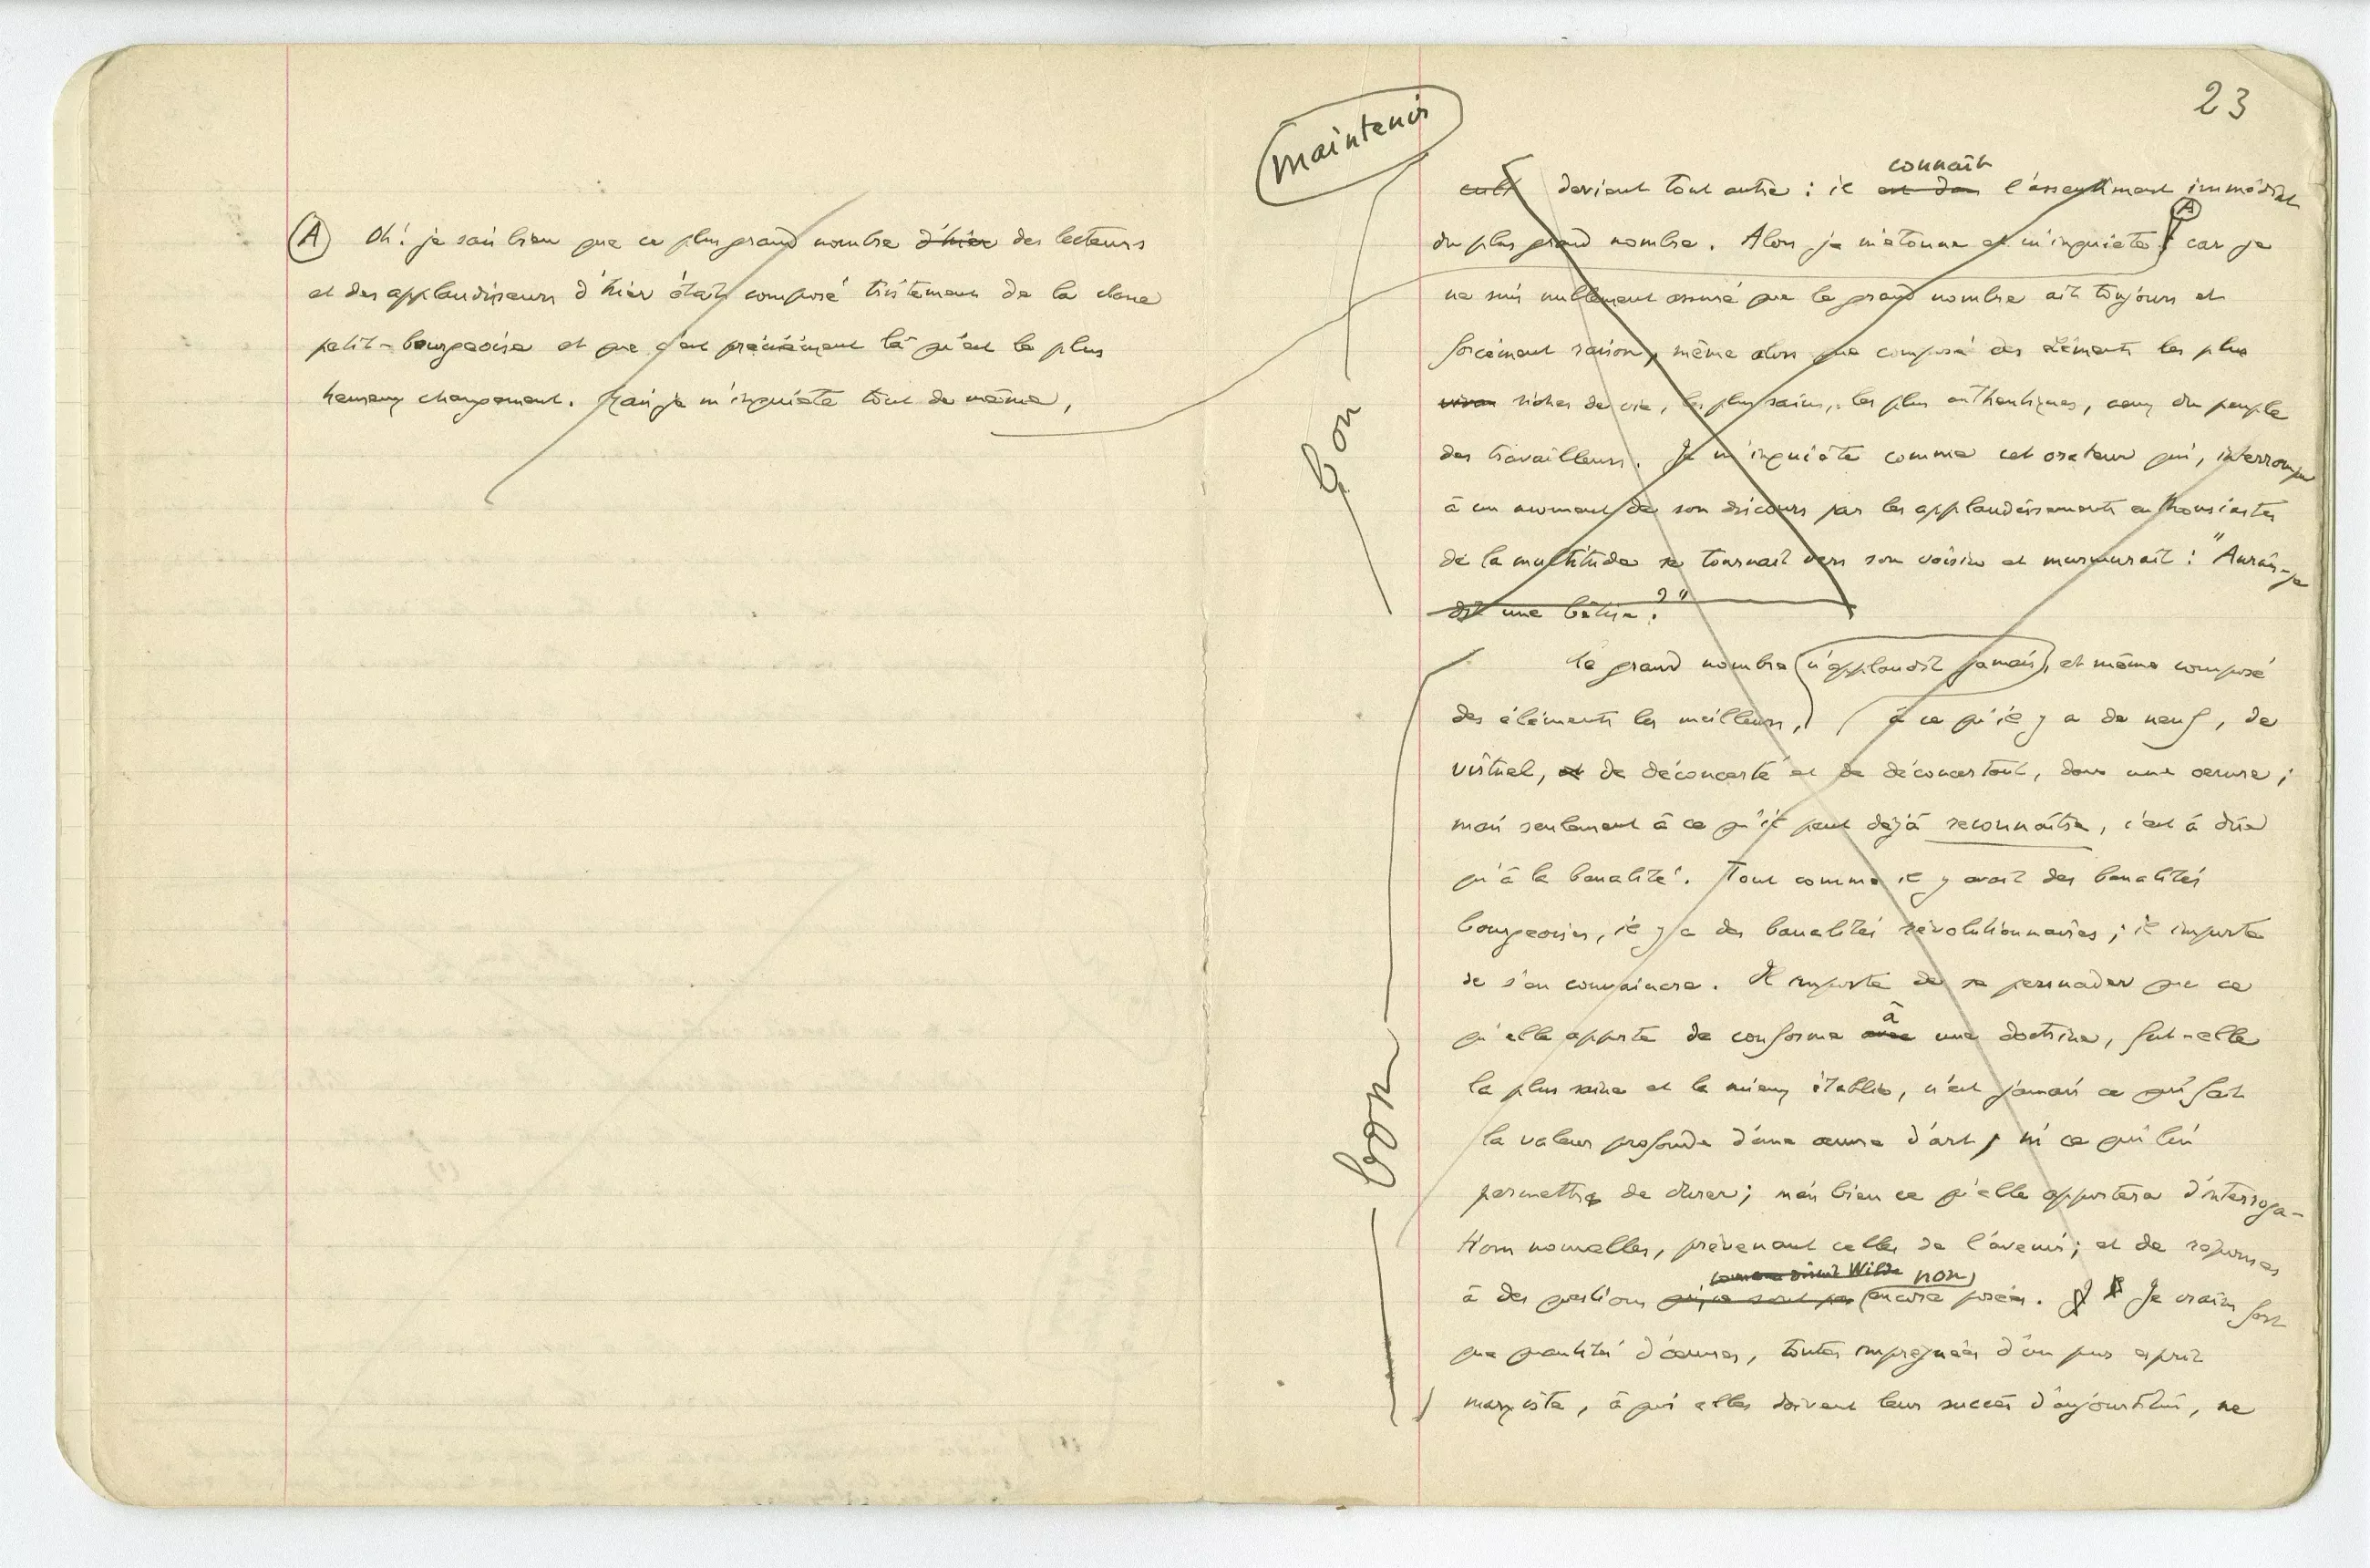 Ⓐ Oh! je sais bien que ce plus grand nombre d'hier des lecteurs
et des applaudisseurs d'hier était composé tristement de la classe
petit-bourgeoise et que c'est précisément là qu'est le plus
heureux changement. Mais je m'inquiète tout de même,
23
maintenir
connaît
devient tout autre : il est dans l'assentiment immédiat
Ⓐ
du plus grand nombre. Alors je m'étonne et m'inquiète ; car je
ne suis nullement assuré que le grand nombre ait toujours et
forcément raison, même alors que composé des éléments les plus
riches de vie, les plus sains, les plus authentiques, ceux du peuple
bon
des travailleurs. Je m'inquiète comme cet orateur qui, interrompu
à un moment de son discours par les applaudissements enthousiastes
de la multitude se tournait vers son voisin et murmurait : "Aurais-je
dit une bêtise ?"
Le grand nombre n'applaudit jamais, et même composé
des éléments les meilleurs, à ce qu'il y a de neuf, de
virtuel, et de déconcerté et de déconcertant, dans une œuvre ;
mais seulement à ce qu'il peut déjà reconnaître, c'est à dire
qu'à la banalité. Tout comme il y avait des banalités
bourgeoises, il y a des banalités révolutionnaires ; il importe
de s'en convaincre. Il importe de se persuader que ce
à
qu'elle apporte de conforme avec une doctrine, fut-elle
la plus saine et la mieux établie, n'est jamais ce qui fait
bon
la valeur profonde d'une œuvre d'art, ni ce qui lui
permettra de durer ; mais bien ce qu'elle apportera d'interroga-
tions nouvelles, prévenant celles de l'avenir ; et de réponses
comme disait Wilde non
à des questions qui ne sont pas encore posées. Je crains fort
que quantité d'œuvres, toutes imprégnées d'un pur esprit
marxiste, à quoi elles doivent leur succès d'aujourd'hui, ne